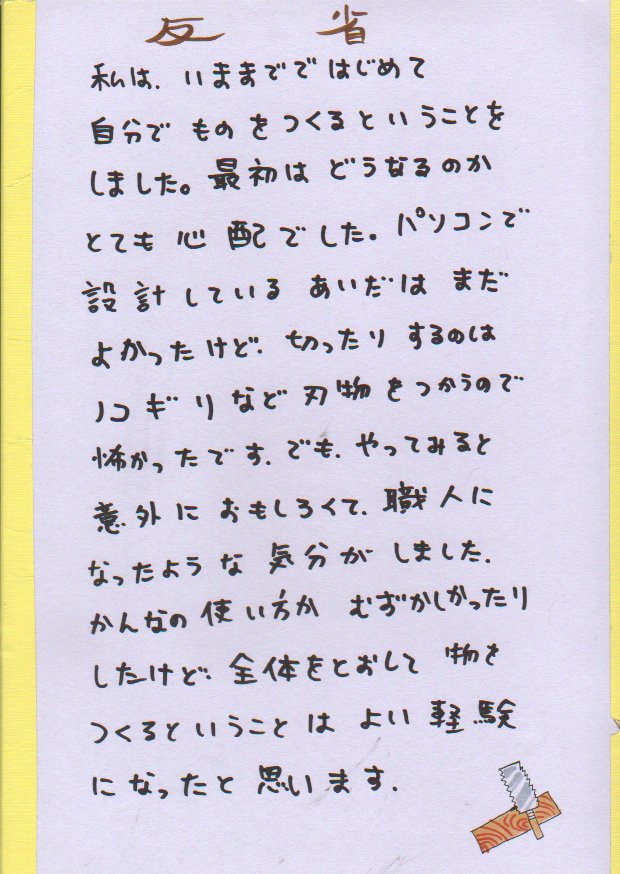 反省
私は、いままでではじめて
自分でものをつくるということを
しました。最初はどうなるのか
とても心配でした。パソコンで
設計しているあいだはまだ
よかったけど、切ったりするのは
ノコギリなど刃物をつかうので
怖かったです。でも、やってみると
意外におもしろくて、職人に
なったような気分がしました。
かんなの使い方がむずかしかったり
したけど、全体をとおして物を
つくるということはよい軽験
になったと思います。